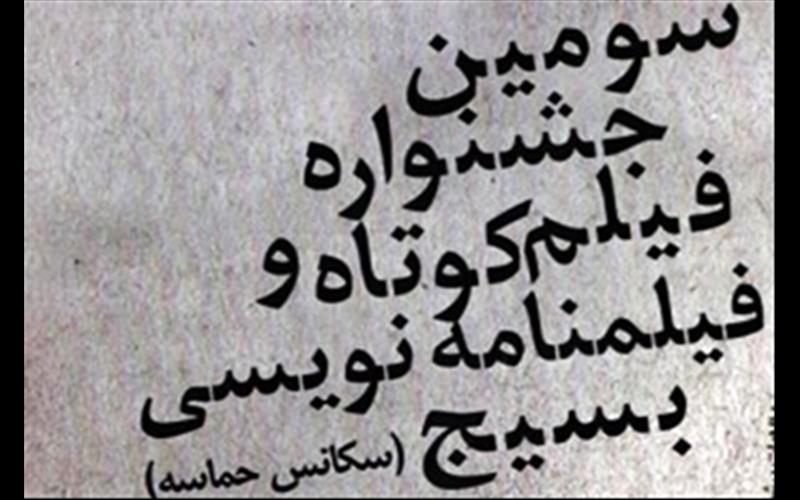 سومین
جشنواره
فیلم کوتاه و
فیلمنامه نویسی
بسیج
(سکانس حماسه)